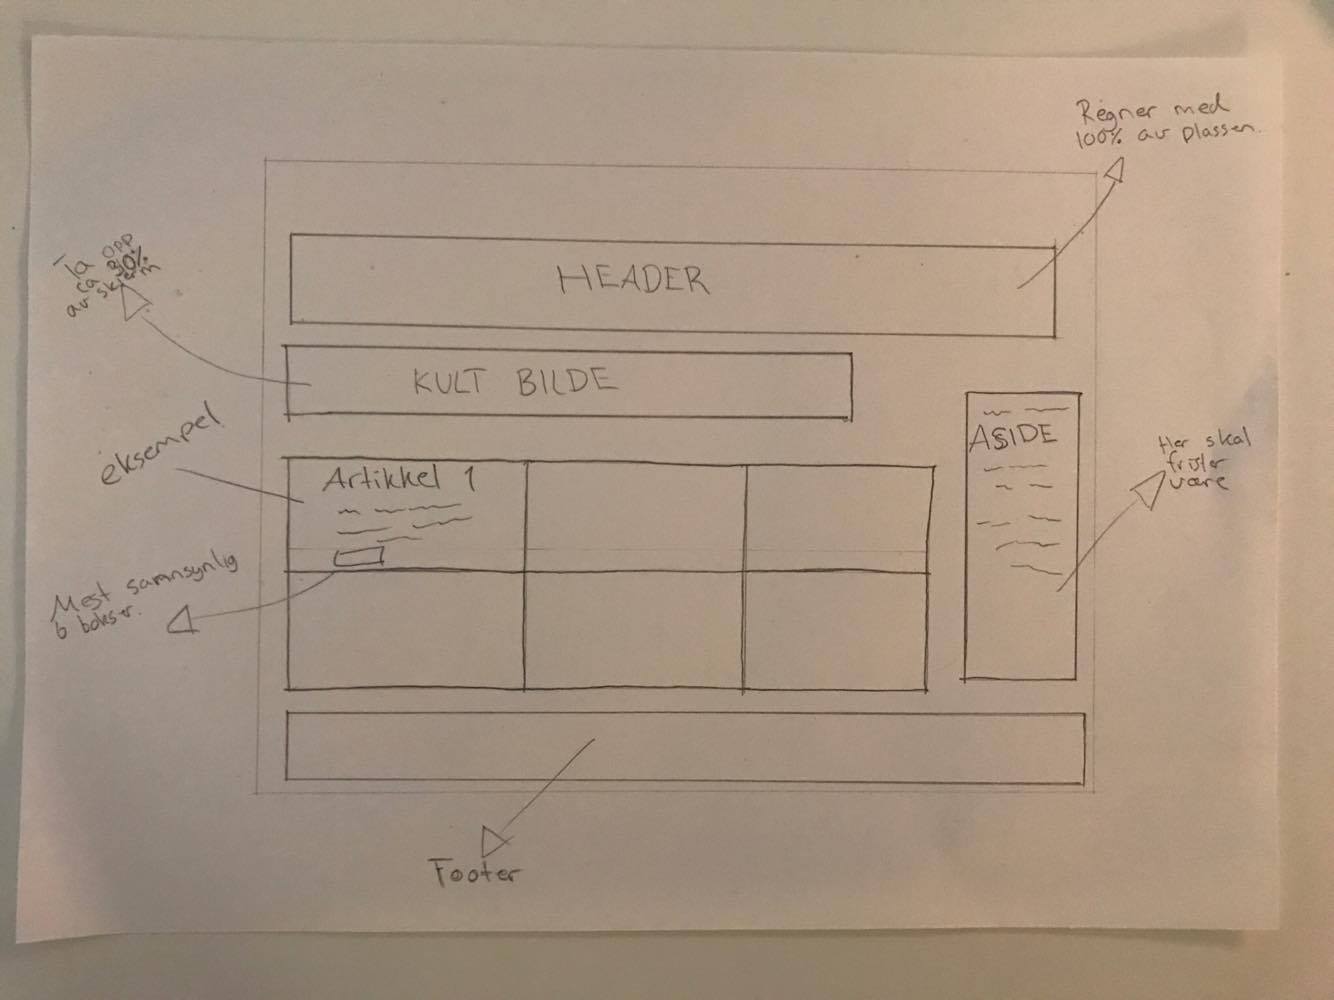 Regner med
100% av plassen.
Ta opp
ca 80%
av skjerm
HEADER
KULT BILDE
eksempel
Artikkel 1
ASIDE
Her skal
frister
være
Mest sannsynlig
6 bokser.
Footer